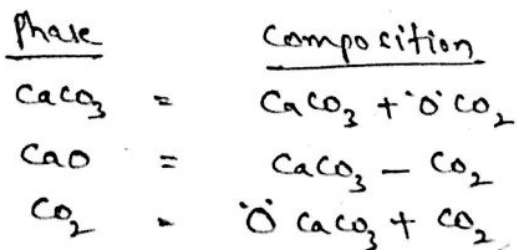 Phase Composition
CaCO₃ = CaCO₃ + 'O' CO₂
CaO = CaCO₃ - CO₂
CO₂ = 'O' CaCO₃ + CO₂